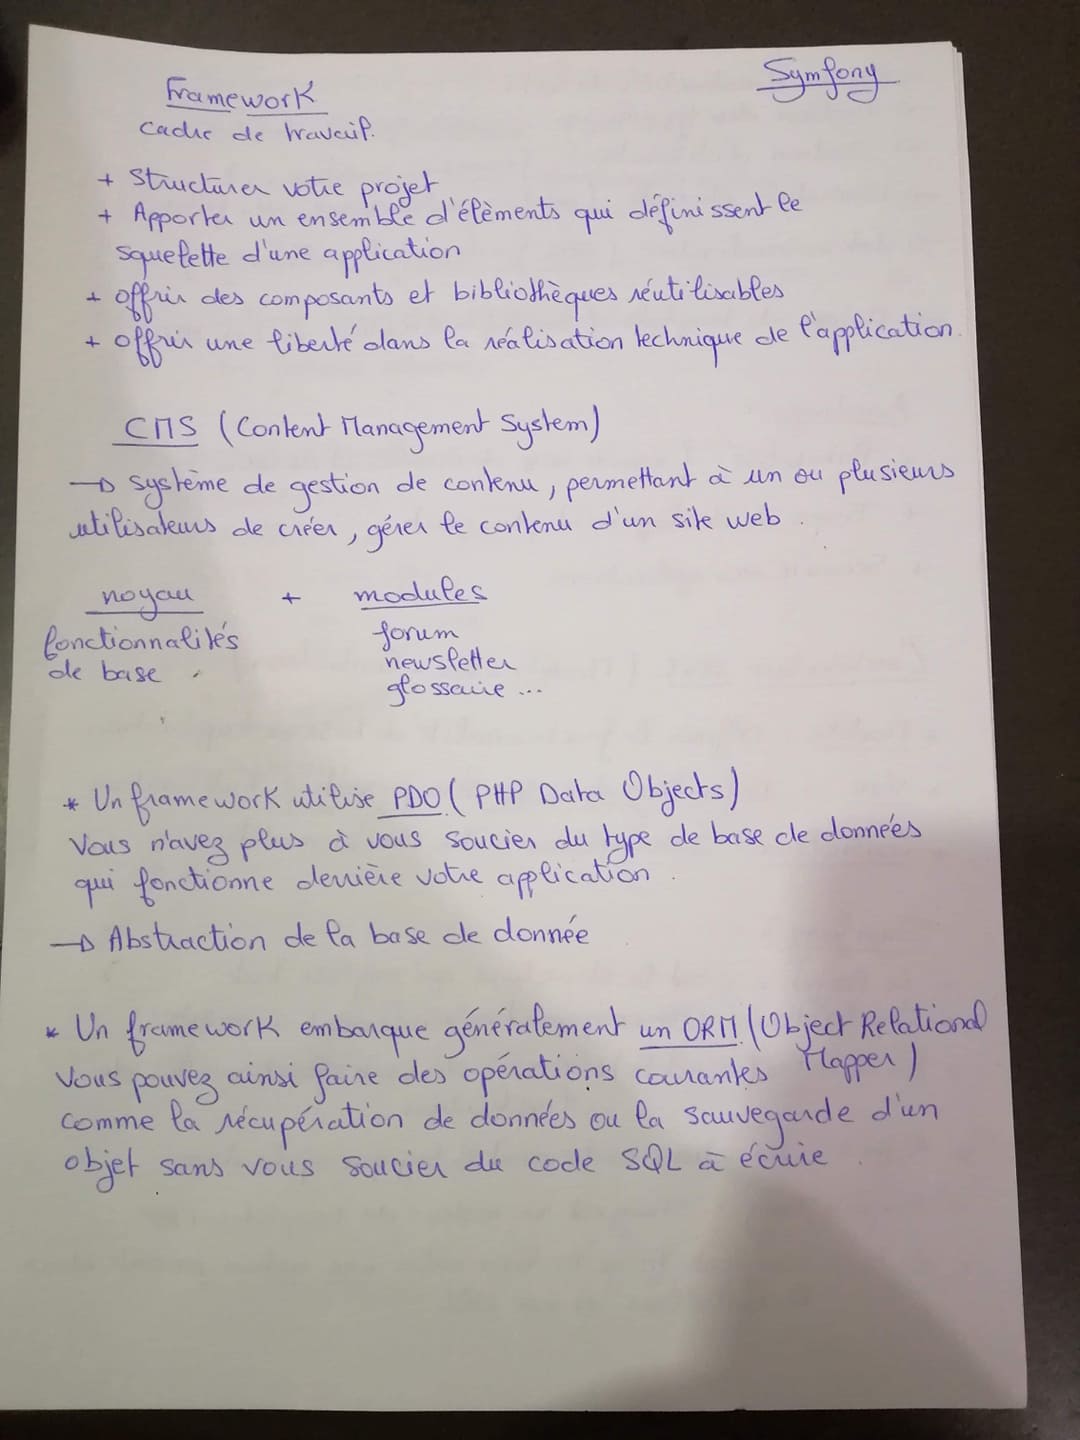 Symfony
Framework
cadre de travail.
+ Structurer votre projet
+ Apporter un ensemble d'élèments qui définissent le
squelette d'une application
+ offrir des composants et bibliothèques réutilisables
+ offrir une liberté dans la réalisation technique de l'application.
CMS (Content Management System)
→ système de gestion de contenu, permettant à un ou plusieurs
utilisateurs de créer, gérer le contenu d'un site web.
noyau + modules
fonctionnalités
de base
forum
newsletter
glossaire ...
* Un framework utilise PDO (PHP Data Objects)
Vous n'avez plus à vous soucier du type de base de données
qui fonctionne derrière votre application.
→ Abstraction de la base de donnée
* Un framework embarque généralement un ORM (Object Relational
Mapper)
Vous pouvez ainsi faire des opérations courantes
comme la récupération de données ou la sauvegarde d'un
objet sans vous soucier du code SQL à écrire.